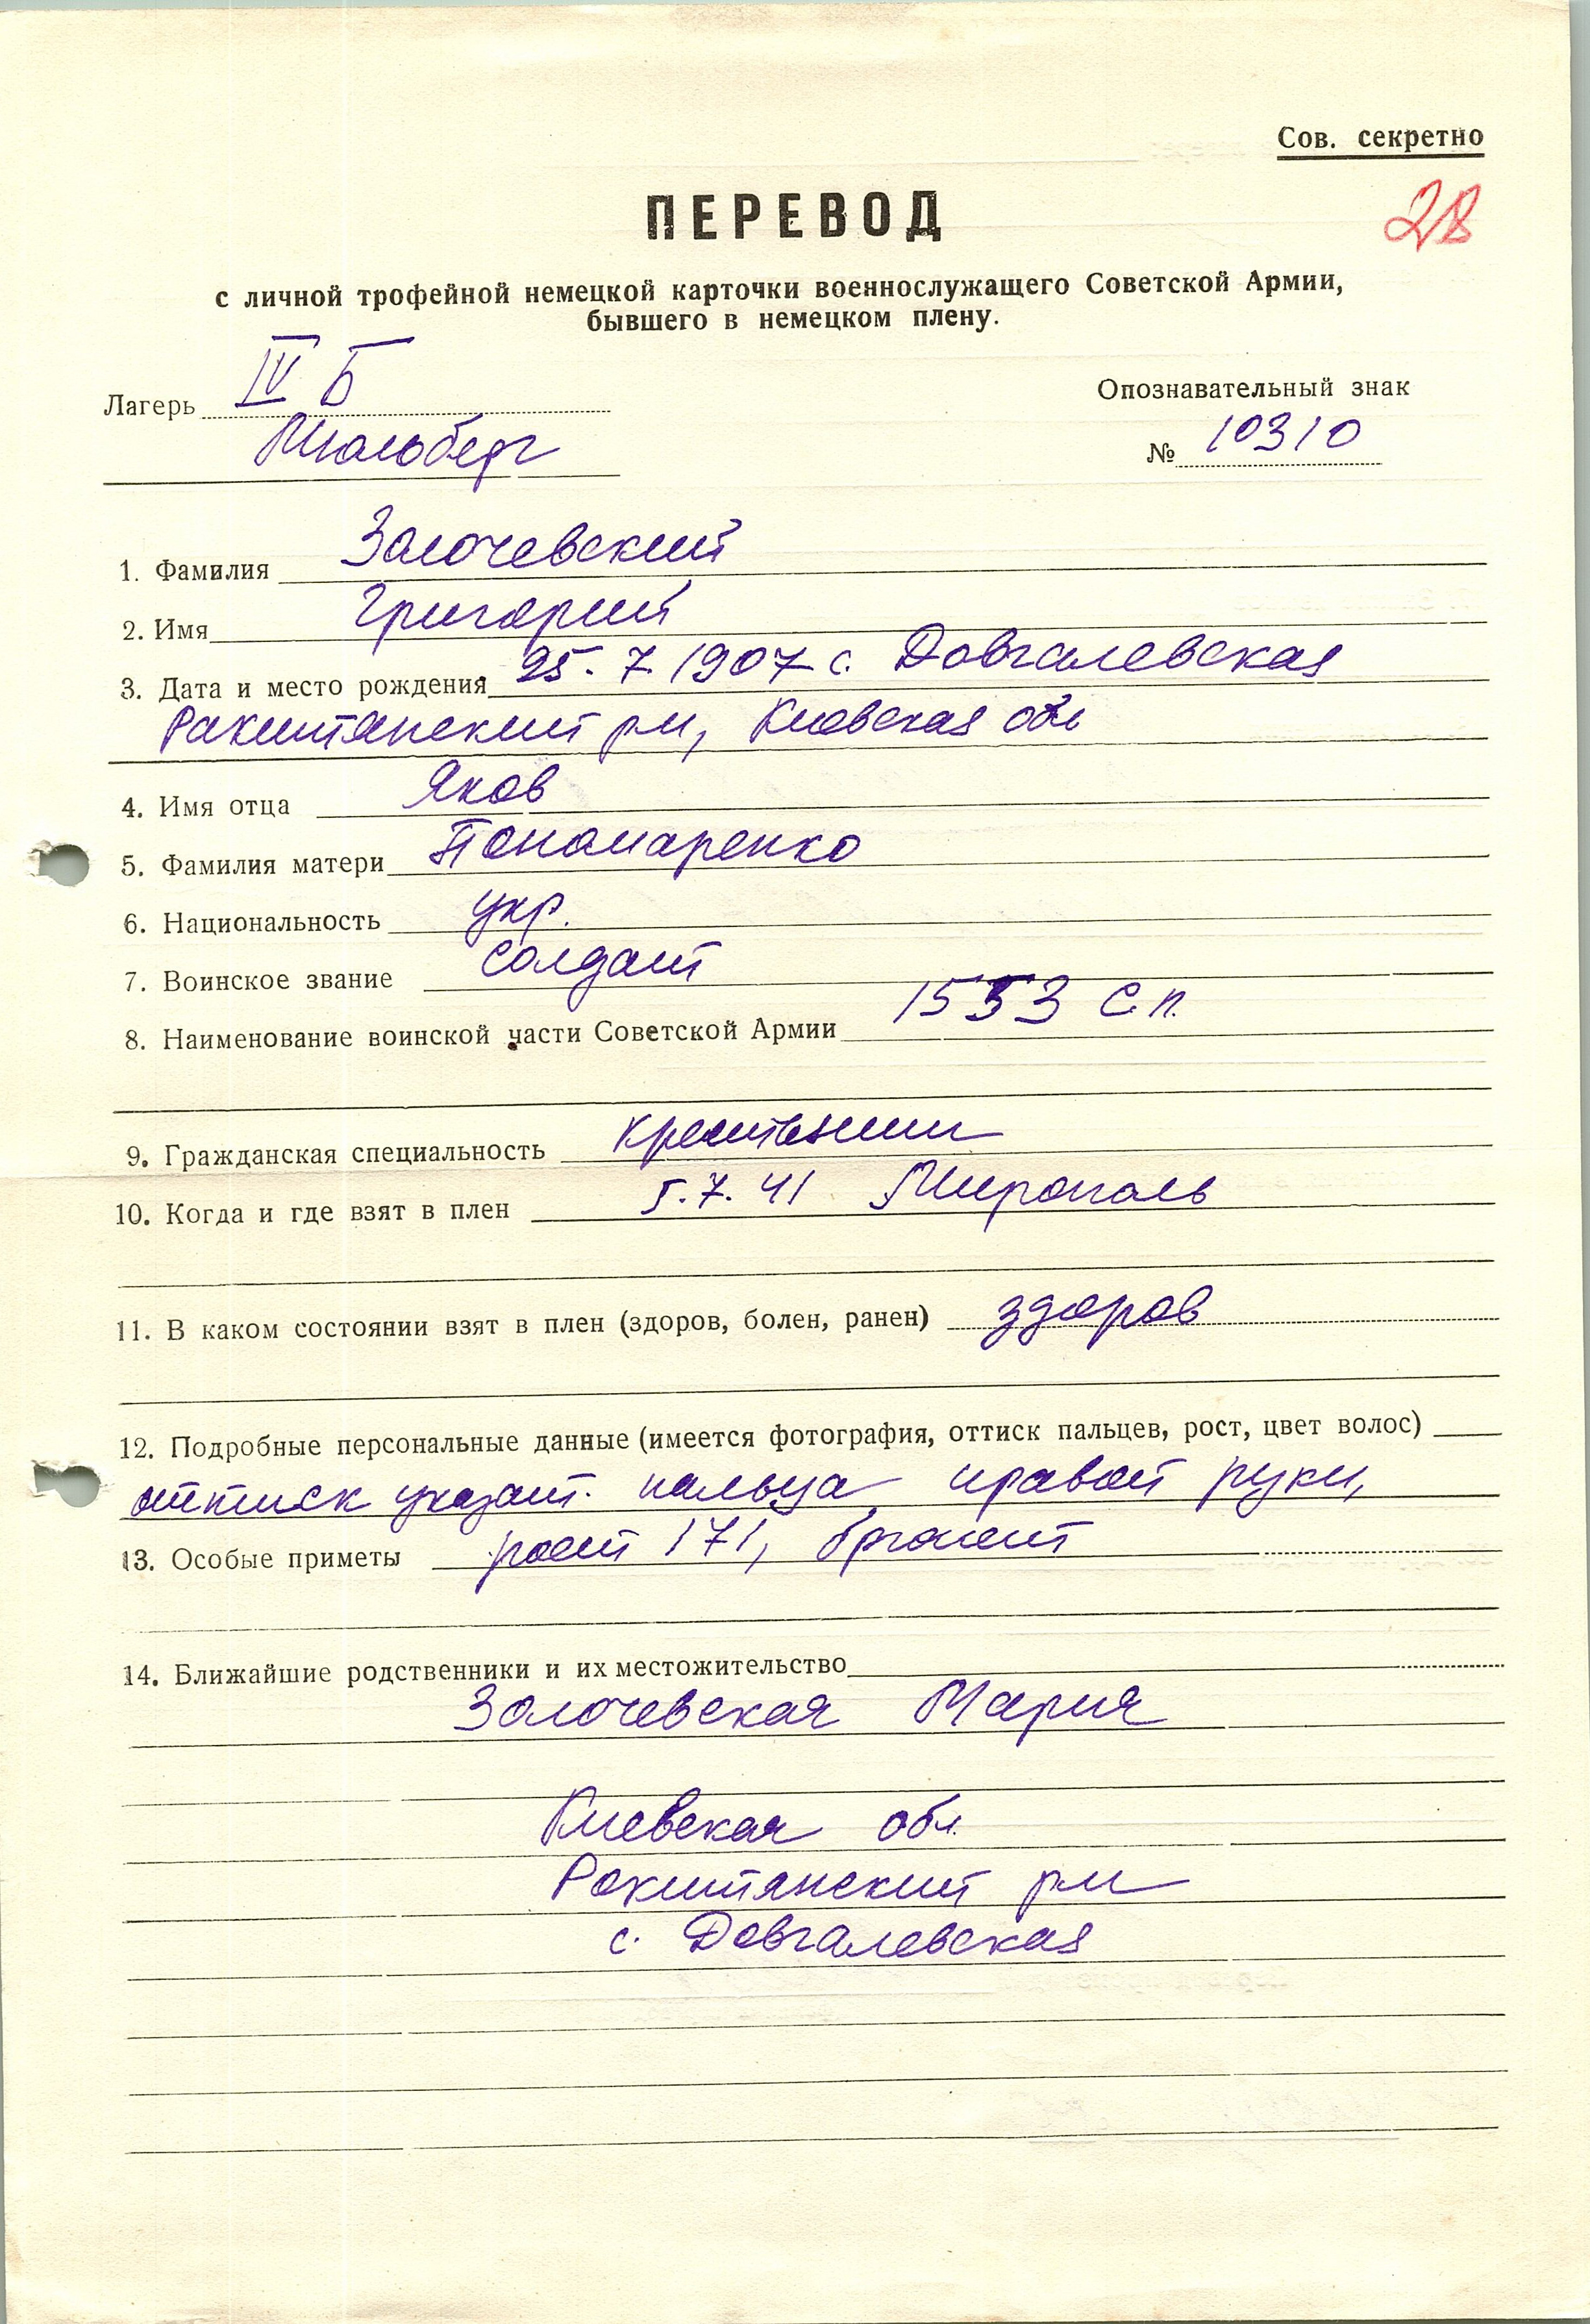 Сов. секретно
28
ПЕРЕВОД
с личной трофейной немецкой карточки военнослужащего Советской Армии,
бывшего в немецком плену.
Лагерь IV Б
Мюльберг
Опознавательный знак
№ 10310
1. Фамилия Золочевский
2. Имя Григорий
3. Дата и место рождения 25.7 1907 с. Довгалевская
Ракитянский р-н, Киевская обл
4. Имя отца Яков
5. Фамилия матери Пономаренко
6. Национальность укр.
7. Воинское звание солдат
8. Наименование воинской части Советской Армии 1553 с.п.
9. Гражданская специальность крестьянин
10. Когда и где взят в плен 5.7.41 Мирополь
11. В каком состоянии взят в плен (здоров, болен, ранен) здоров
12. Подробные персональные данные (имеется фотография, оттиск пальцев, рост, цвет волос)
оттиск указат. пальца правой руки,
13. Особые приметы рост 171, брюнет
14. Ближайшие родственники и их местожительство
Золочевская Мария
Киевская обл.
Ракитянский р-н
с. Довгалевская